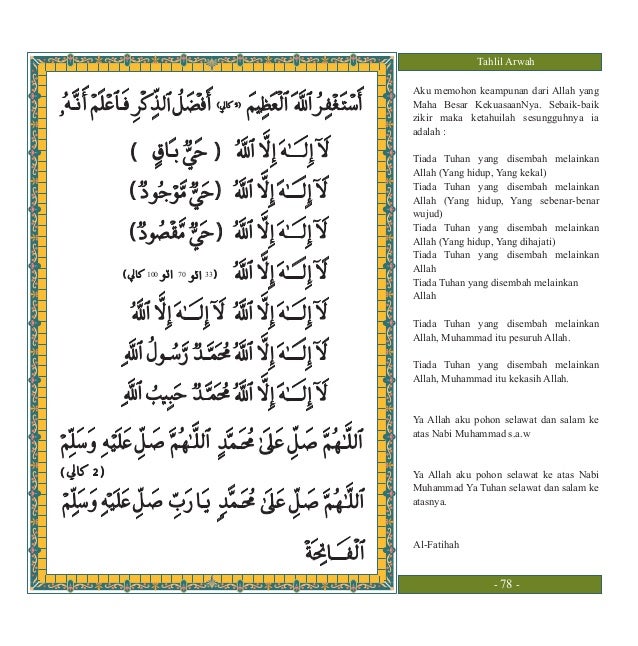 أَسْتَغْفِرُ ٱللَّهَ ٱلْعَظِيْمَ (٣ كالي) أَفْضَلُ ٱلذِّكْرِ فَٱعْلَمْ أَنَّهُۥ
لَآ إِلَـٰهَ إِلَّا ٱللَّهُ ( حَيٌّ بَاقٍ )
لَآ إِلَـٰهَ إِلَّا ٱللَّهُ (حَيٌّ مَّوْجُودٌ)
لَآ إِلَـٰهَ إِلَّا ٱللَّهُ (حَيٌّ مَّقْصُودٌ)
لَآ إِلَـٰهَ إِلَّا ٱللَّهُ (33 اتو 70 اتو 100 كالي)
لَآ إِلَـٰهَ إِلَّا ٱللَّهُ لَآ إِلَـٰهَ إِلَّا ٱللَّهُ
لَآ إِلَـٰهَ إِلَّا ٱللَّهُ مُحَمَّدٌ رَّسُولُ ٱللَّهِ
لَآ إِلَـٰهَ إِلَّا ٱللَّهُ مُحَمَّدٌ حَبِيبُ ٱللَّهِ
ٱللَّهُمَّ صَلِّ عَلَىٰ مُحَمَّدٍ ٱللَّهُمَّ صَلِّ عَلَيْهِ وَسَلِّمْ
(2 كالي)
ٱللَّهُمَّ صَلِّ عَلَىٰ مُحَمَّدٍ يَا رَبِّ صَلِّ عَلَيْهِ وَسَلِّمْ
ٱلْفَاتِحَةْ
Tahlil Arwah
Aku memohon keampunan dari Allah yang
Maha Besar KekuasaanNya. Sebaik-baik
zikir maka ketahuilah sesungguhnya ia
adalah :
Tiada Tuhan yang disembah melainkan
Allah (Yang hidup, Yang kekal)
Tiada Tuhan yang disembah melainkan
Allah (Yang hidup, Yang sebenar-benar
wujud)
Tiada Tuhan yang disembah melainkan
Allah (Yang hidup, Yang dihajati)
Tiada Tuhan yang disembah melainkan
Allah
Tiada Tuhan yang disembah melainkan
Allah
Tiada Tuhan yang disembah melainkan
Allah, Muhammad itu pesuruh Allah.
Tiada Tuhan yang disembah melainkan
Allah, Muhammad itu kekasih Allah.
Ya Allah aku pohon selawat dan salam ke
atas Nabi Muhammad s.a.w
Ya Allah aku pohon selawat ke atas Nabi
Muhammad Ya Tuhan selawat dan salam ke
atasnya.
Al-Fatihah
- 78 -